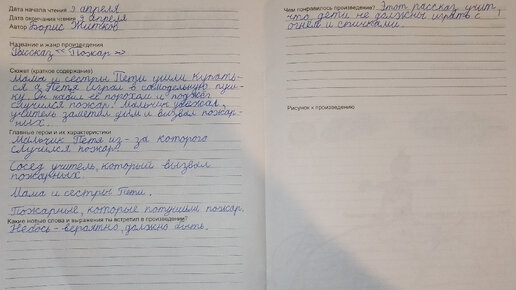 Дата начала чтения 9 апреля
Дата окончания чтения 9 апреля
Автор Борис Житков
Название и жанр произведения
Рассказ «Пожар»
Сюжет (краткое содержание)
Мама и сестры Пети ушли купать-
ся а Петя играл в самодельную пуш-
ку. Он набил её порохом и поджёг
случился пожар. Мальчик убежал,
учитель заметил дым и вызвал пожар-
ных.
Главные герои и их характеристики
Мальчик Петя из-за которого
случился пожар.
Сосед учитель, который вызвал
пожарных.
Мама и сестры Пети.
Пожарные, которые потушили пожар.
Какие новые слова и выражения ты встретил в произведении?
Небось - вероятно, должно быть.
Чем понравилось произведение? Этот рассказ учит,
что дети не должны играть с
огнём и спичками.
Рисунок к произведению